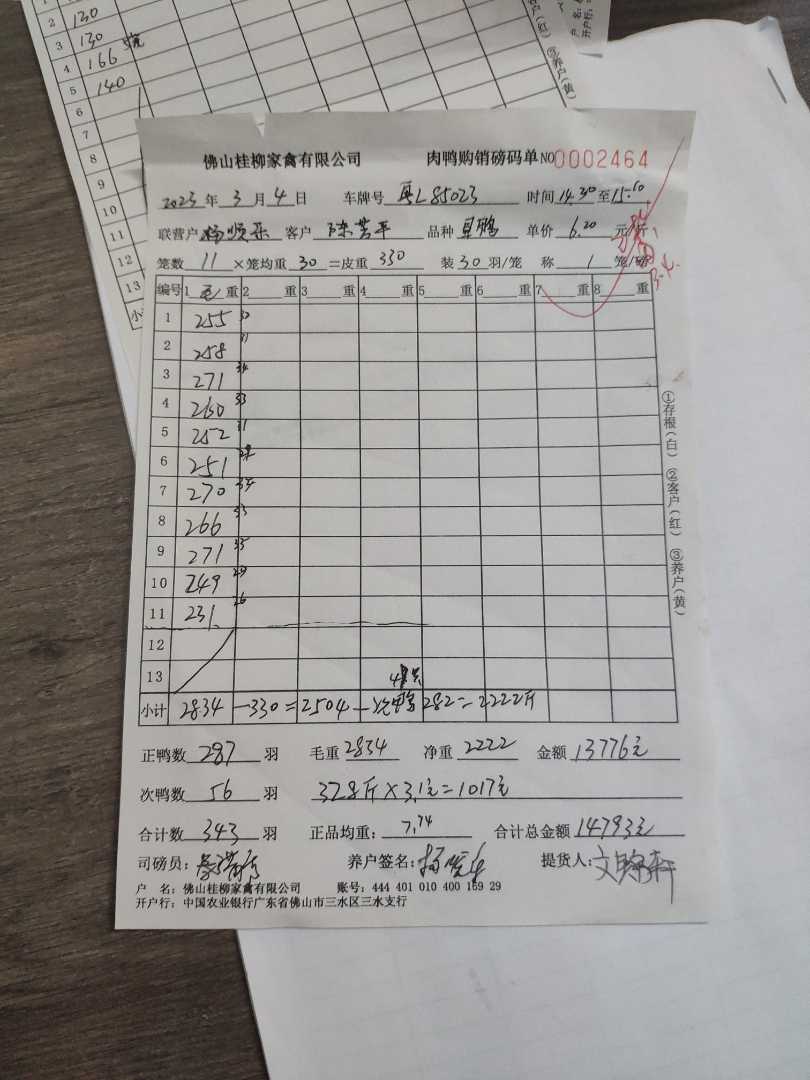 1
2 130
3 130
4 166
5 140
6
7
8
9
10
11
12
13
(红) ③养户(黄)
佛山桂柳家禽有限公司 肉鸭购销磅码单 NO0002464
2023年3月4日 车牌号 粤L85023 时间14:30至15:50
联营户 杨顺乐 客户 陈芳平 品种 单价 6.20 元/斤
笼数 11 ×笼均重 30 =皮重 330 装30羽/笼 称 1 笼/磅
编号 1 毛 重 2 重 3 重 4 重 5 重 6 重 7 重 8 重
1 255 30
2 258 31
3 271 34
4 260 33
5 252 31
6 251
7 270 34
8 266 33
9 271 35
10 249 29
11 231 26
12
13
小计 2834 -330=2504-次鸭282=2222斤
①存根(白) ②客户(红) ③养户(黄)
正鸭数 287 羽 毛重 2834 净重 2222 金额 13776元
次鸭数 56 羽 328斤×3.1元=1017元
合计数 343 羽 正品均重: 7.74 合计总金额 14793元
司磅员: 养户签名: 提货人:
户 名: 佛山桂柳家禽有限公司 账号: 444 401 010 400 169 29
开户行: 中国农业银行广东省佛山市三水区三水支行